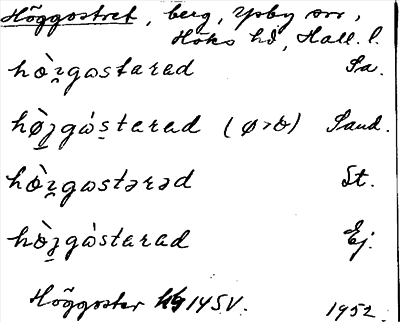 Höggostret, berg, Ysby sn,
Höks hd, Hall. l.
hò̤ʒgωstarad Sa.
hø̤̀ʒgὼs̱tarad (ø>ö) Sand.
hò̤ʒgωstərəd St.
hò̤ʒgὼstarad Ej.
Höggoster 14SV. 1952.